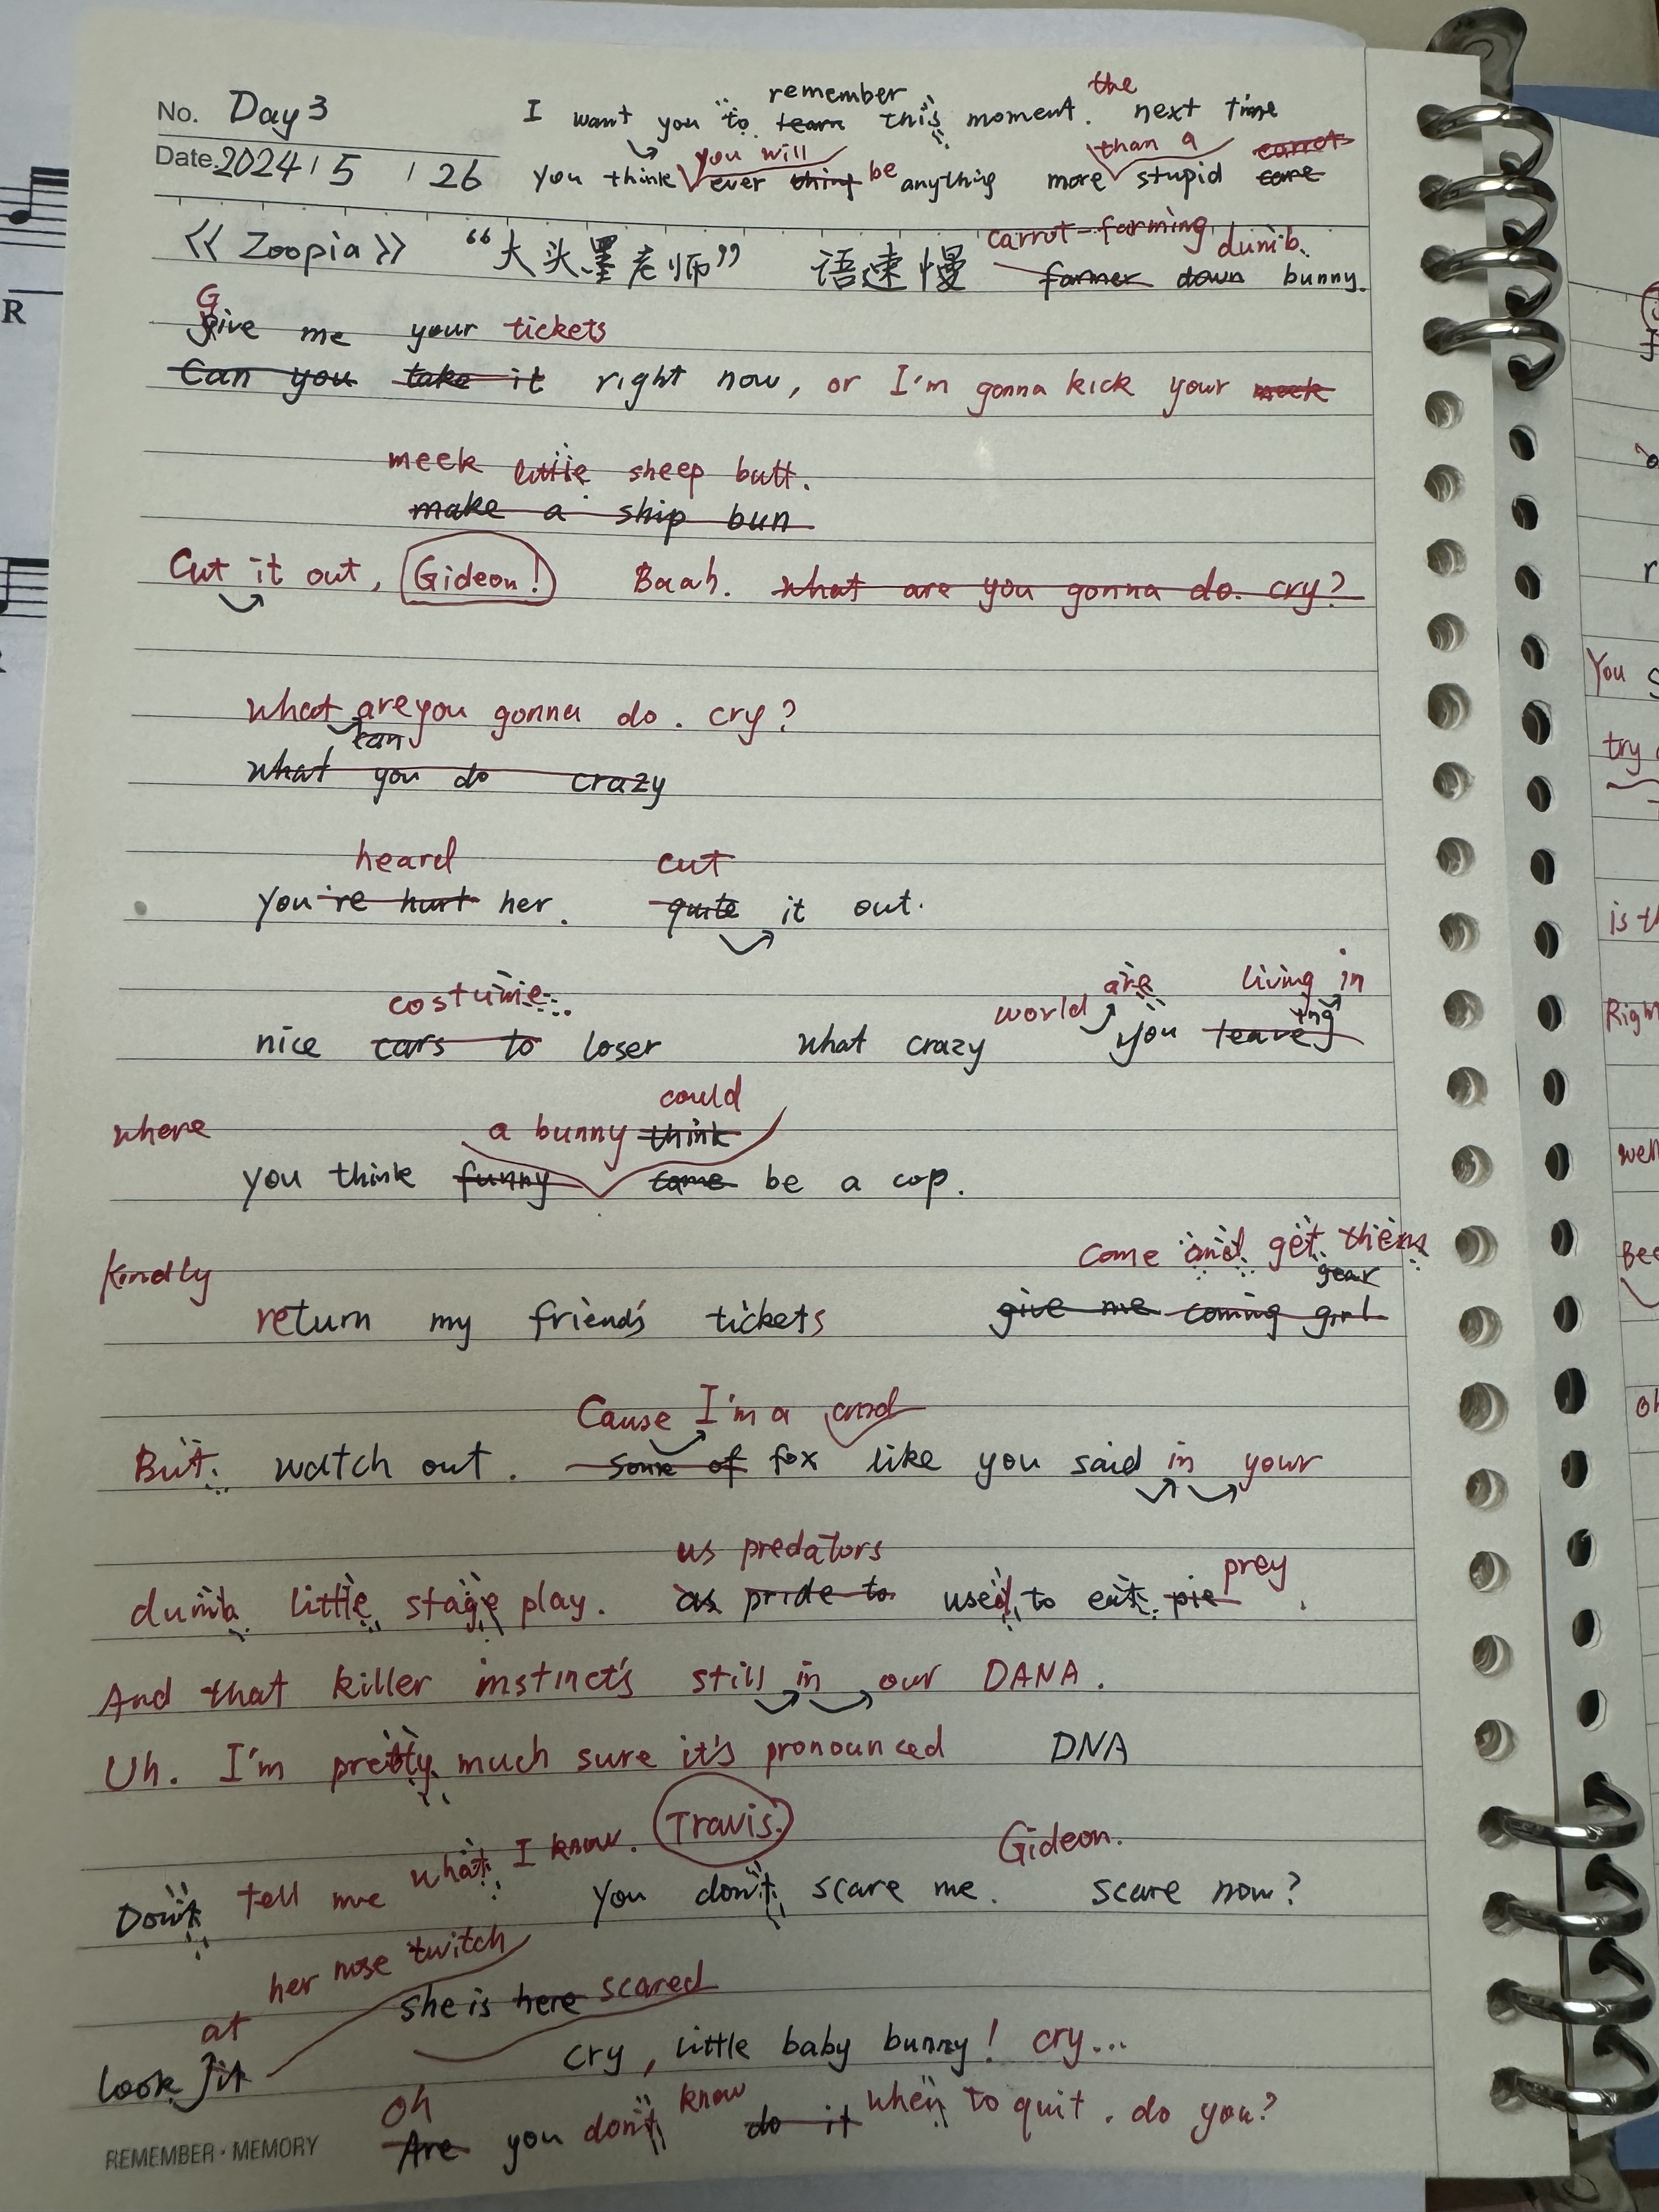 No. Day 3
I want you to remember learn this moment. the next time
Date. 2024 / 5 / 26
you think you will ever thing be anything more than a stupid carrot care
《Zoopia》 “大头墨老师” 语速慢
carrot-farming dumb
farmer down bunny.
Give me your tickets
Can you take it right now, or I'm gonna kick your meek
meek little sheep butt.
make a ship bun
Cut it out, Gideon! Baah. what are you gonna do. cry?
what are you gonna do. cry?
can
what you do crazy
heard cut
you're hurt her. quite it out.
costume world are living in
nice cars to loser what crazy you leaveing
where a bunny think could
you think funny came be a cop.
kindly come and get them
gear
return my friend's tickets give me coming girl
Cause I'm a and
But watch out. some of fox like you said in your
us predators prey
dumb little stage play. as pride to used to eat pie.
And that killer instinct's still in our DANA.
Uh. I'm pretty much sure it's pronounced DNA
Don't tell me what I know. Travis. you don't scare me. Gideon. scare now?
her nose twitch
she is here scared
look at it cry, little baby bunny! cry...
Oh know
Are you don't do it when to quit. do you?
REMEMBER·MEMORY
R
You
try
is th
Right
well